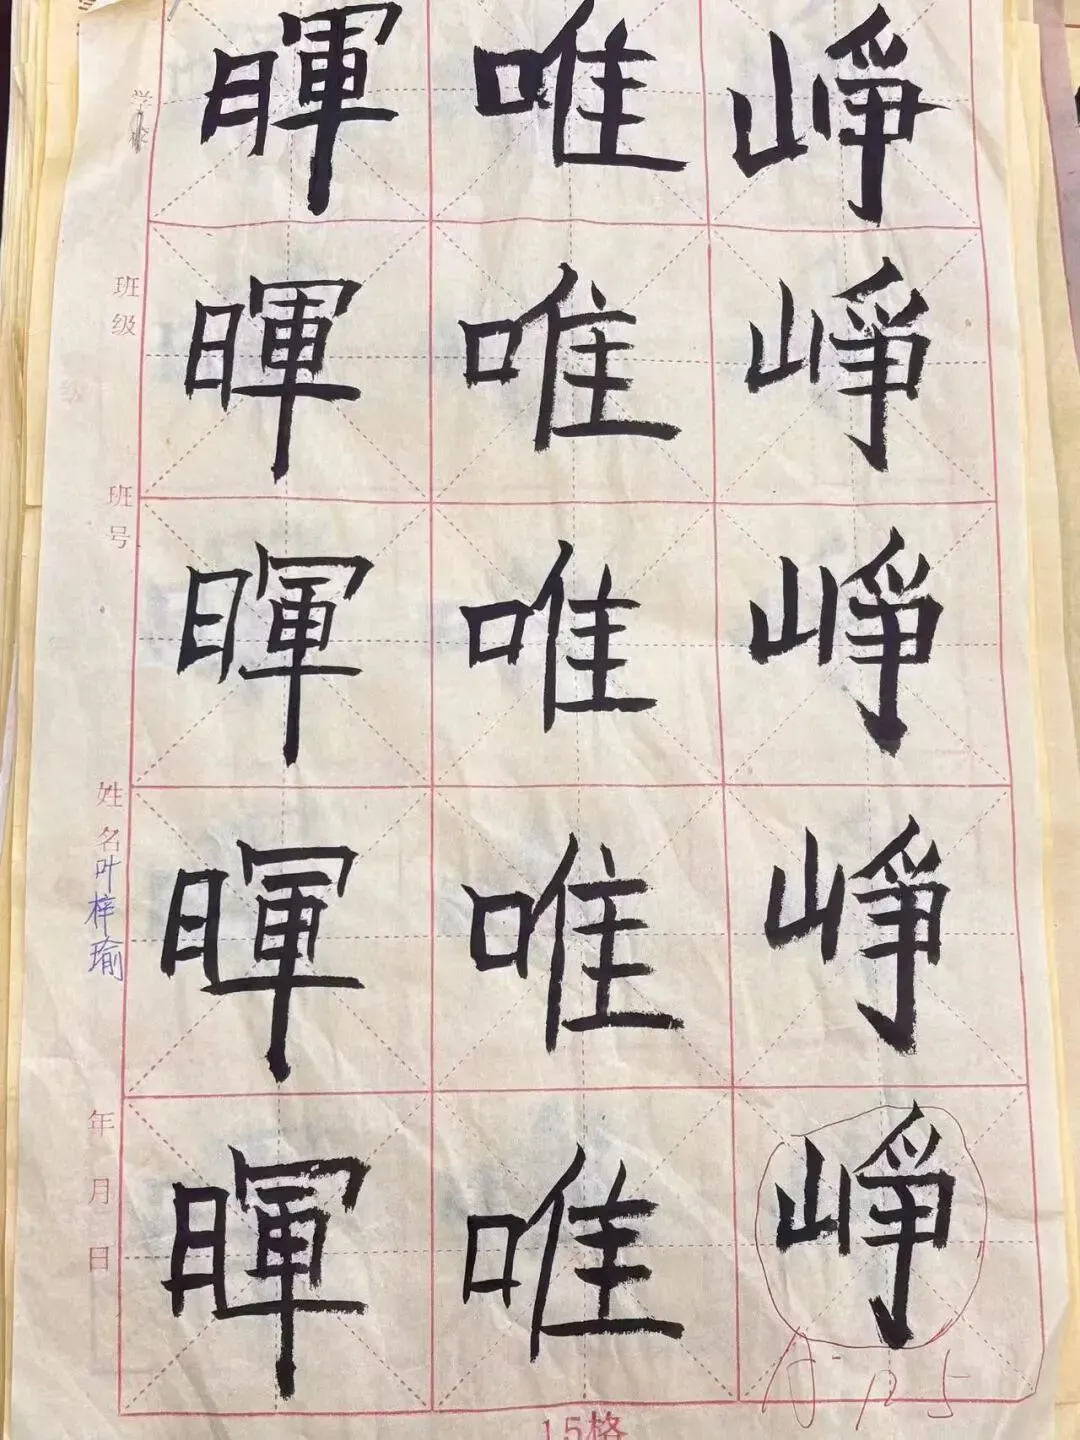 暉 唯 崢
暉 唯 崢
暉 唯 崢
暉 唯 崢
暉 唯 崢
学校
班级
班号
姓名叶梓瑜
年月日
15格